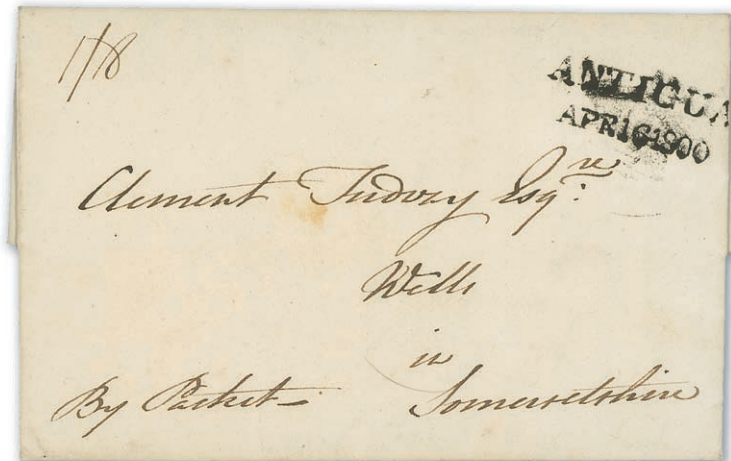 1/8
ANTIGUA
APR 16 1800
Clement Tudway Esqre
Wells
in
Somersetshire
By Packet